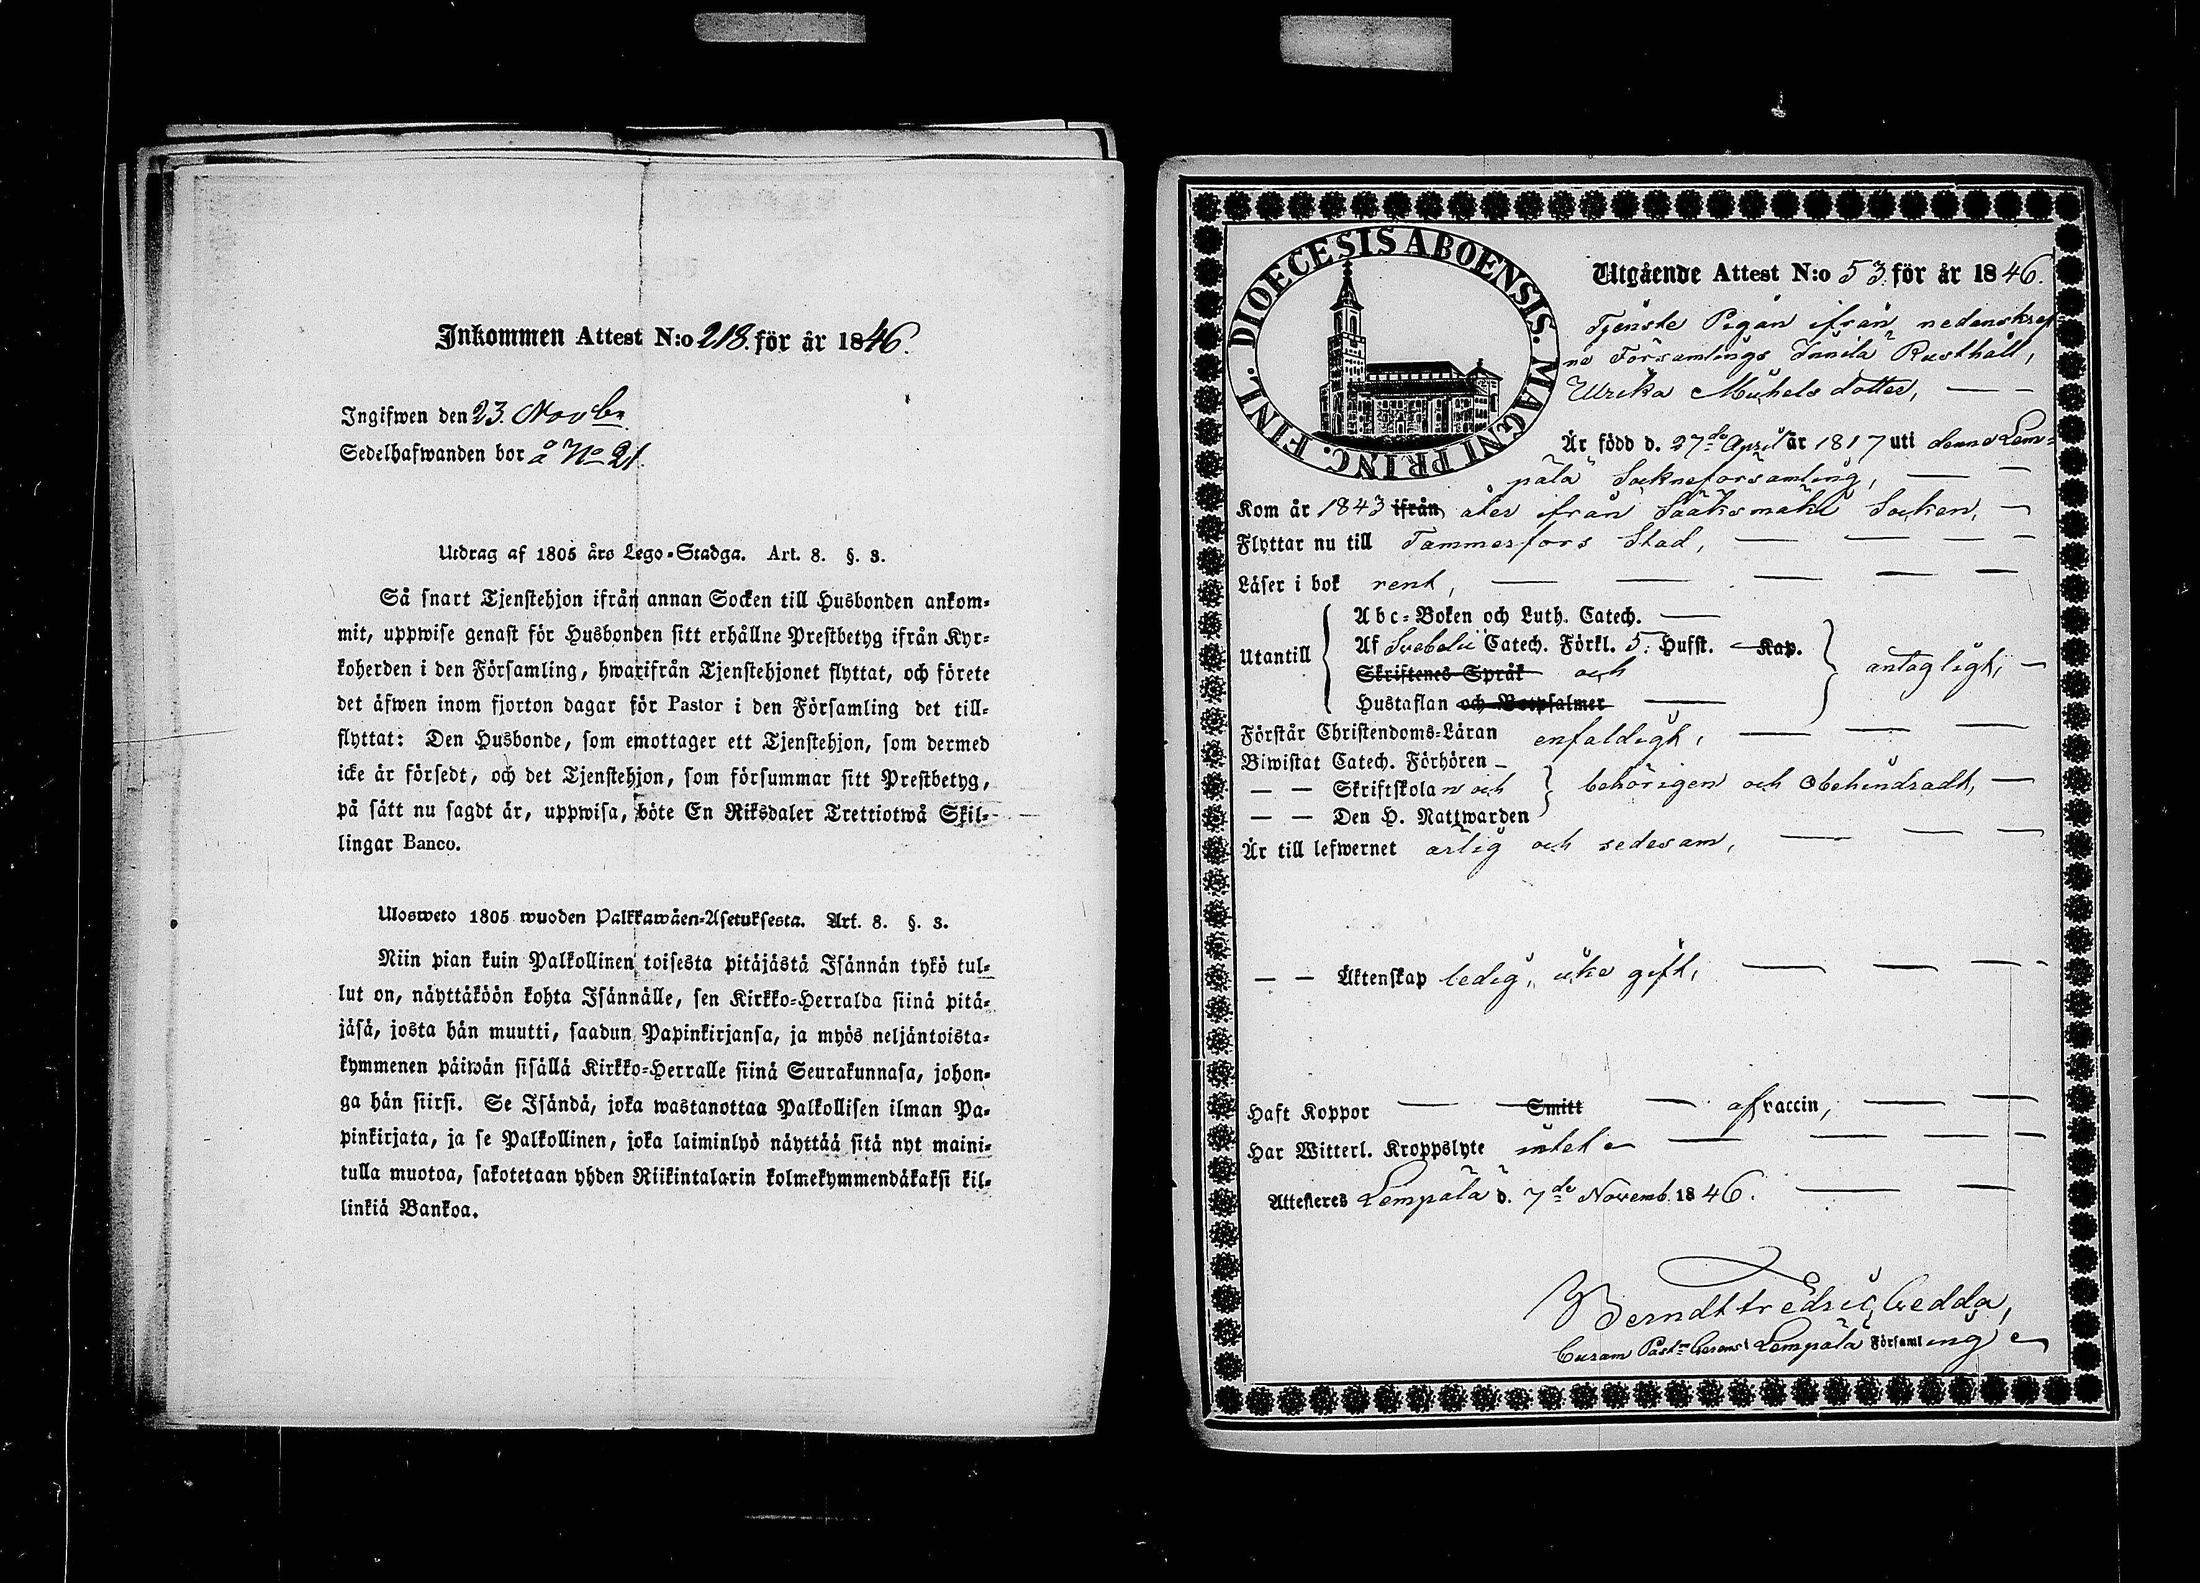 Inkommen Attest N:o 218. för år 1846.
Ingifwen den 23. Novbr
Sedelhafwanden bor å No 21.
Utdrag af 1805 års Lego-Stadga. Art. 8. §. 3.
Så snart Tjenstehjon ifrån annan Socken till Husbonden ankom-
mit, uppwise genast för Husbonden sitt erhållne Prestbetyg ifrån Kyr-
koherden i den Församling, hwarifrån Tjenstehjonet flyttat, och förete
det äfwen inom fjorton dagar för Pastor i den Församling det till-
flyttat: Den Husbonde, som emottager ett Tjenstehjon, som dermed
icke är försedt, och det Tjenstehjon, som försummar sitt Prestbetyg,
på sätt nu sagdt är, uppwisa, böte En Riksdaler Trettiotwå Skil-
lingar Banco.
Ulosweto 1805 wuoden Palkkawäen-Asetuksesta. Art. 8. §. 3.
Niin pian kuin Palkollinen toisesta pitäjästä Isännän tykö tul-
lut on, näyttäköön kohta Isännälle, sen Kirkko-Herralda siinä pitä-
jäsä, josta hän muutti, saadun Papinkirjansa, ja myös neljäntoista-
kymmenen päiwän sisällä Kirkko-Herralle siinä Seurakunnasa, johon-
ga hän siirsi. Se Isändä, joka wastanottaa Palkollisen ilman Pa-
pinkirjata, ja se Palkollinen, joka laiminlyö näyttää sitä nyt maini-
tulla muotoa, sakotetaan yhden Riikintalarin kolmekymmendäkaksi kil-
linkiä Bankoa.
DIOECESIS ABOENSIS. MAGNI PRINC. FINL.
Utgående Attest N:o 53 för år 1846.
Tjenste Pigan ifrån nedanskref-
ne Församlings Innila Rusthåll,
Ulrika Michels dotter,
Är född d. 27de April år 1817 uti denna Lem-
pälä Sockneförsamling,
Kom år 1843 ifrån åter ifrån Sääksmäki Socken,
Flyttar nu till Tammerfors Stad,
Läser i bok rent,
Utantill
Abc-Boken och Luth. Catech.
Af Svebelii Catech. Förkl. 5. Hufst. Kap.
Skriftenes Språk och
Hustaflan och Botpsalmer
antagligt,
Förstår Christendoms-Läran enfaldigt,
Biwistat Catech. Förhören
— — Skriftskolan och
— — Den H. Nattwarden
behörigen och obehindradt,
Är till lefwernet ärlig och sedesam,
— — Äktenskap ledig, icke gift,
Haft Koppor — Smitt — af vaccin,
Har Witterl. Kroppslyte intet
Attesteres Lempälä d. 7de Novemb. 1846.
Berndt Fredric Gedda,
Curam Past. Gerens i Lempälä Församling